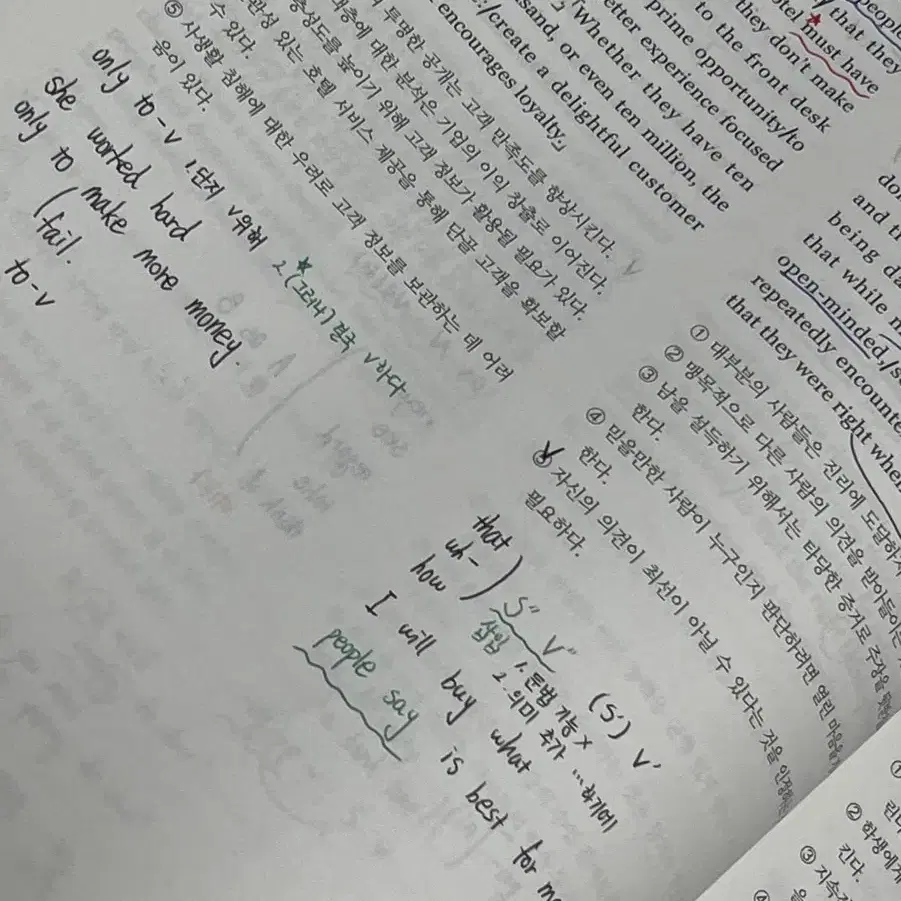 people
that they
hotel must have
they don't make
to the front desk
prime opportunity/to
better experience focused
「Whether they have ten
sand, or even ten million, the
create a delightful customer
encourages loyalty.」
투명한 공개는 고객 만족도를 향상시킨다.
대한 분석은 기업의 이익 창출로 이어진다.
충성도를 높이기 위해 고객 정보가 활용될 필요가 있다.
있는 호텔 서비스 제공을 통해 단골 고객을 확보할
수 있다.
⑤ 사생활 침해에 대한 우려로 고객 정보를 보관하는 데 어려
움이 있다.
only to-v 1. 단지 v위해 2.(그러나) 결국 v하다
she worked hard
only to make more money.
(fail.
to-v
do
and th
being da
that while
open-minded,/s
repeatedly encounte
that they were right when
① 대부분의 사람들은 진리에 도달하
② 맹목적으로 다른 사람의 의견을 받아들이는
③ 남을 설득하기 위해서는 타당한 증거로 주장을
한다.
④ 믿을만한 사람이 누구인지 판단하려면 열린 마음을
한다.
⑤ 자신의 의견이 최선이 아닐 수 있다는 것을 인정하는
필요하다.
that
wh-
how
) S" V" (S') V'
삽입
1. 문법 기능 x
2. 의미 추가 ...하기에
I will buy what is best for me
people say
②학생에게
킨다.
③ 지속
④